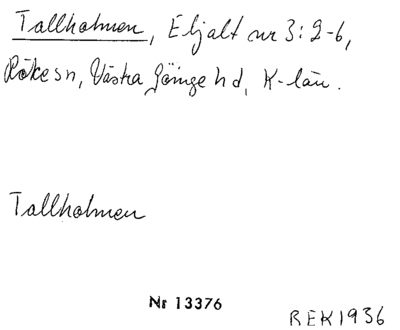 Tallholmen, Eljalt nr 3:2-6,
Röke sn, Västra Göinge hd, K-län.
Tallholmen
Nr 13376
REK1936